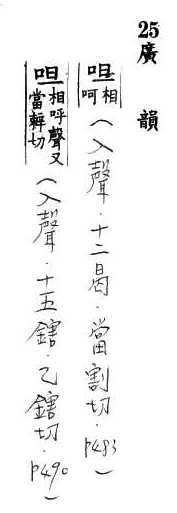 25廣 韻
呾相呵(入聲．十二曷．當割切．p483)
呾相呼聲又當鎋切(入聲．十五鎋．乙鎋切．p490)